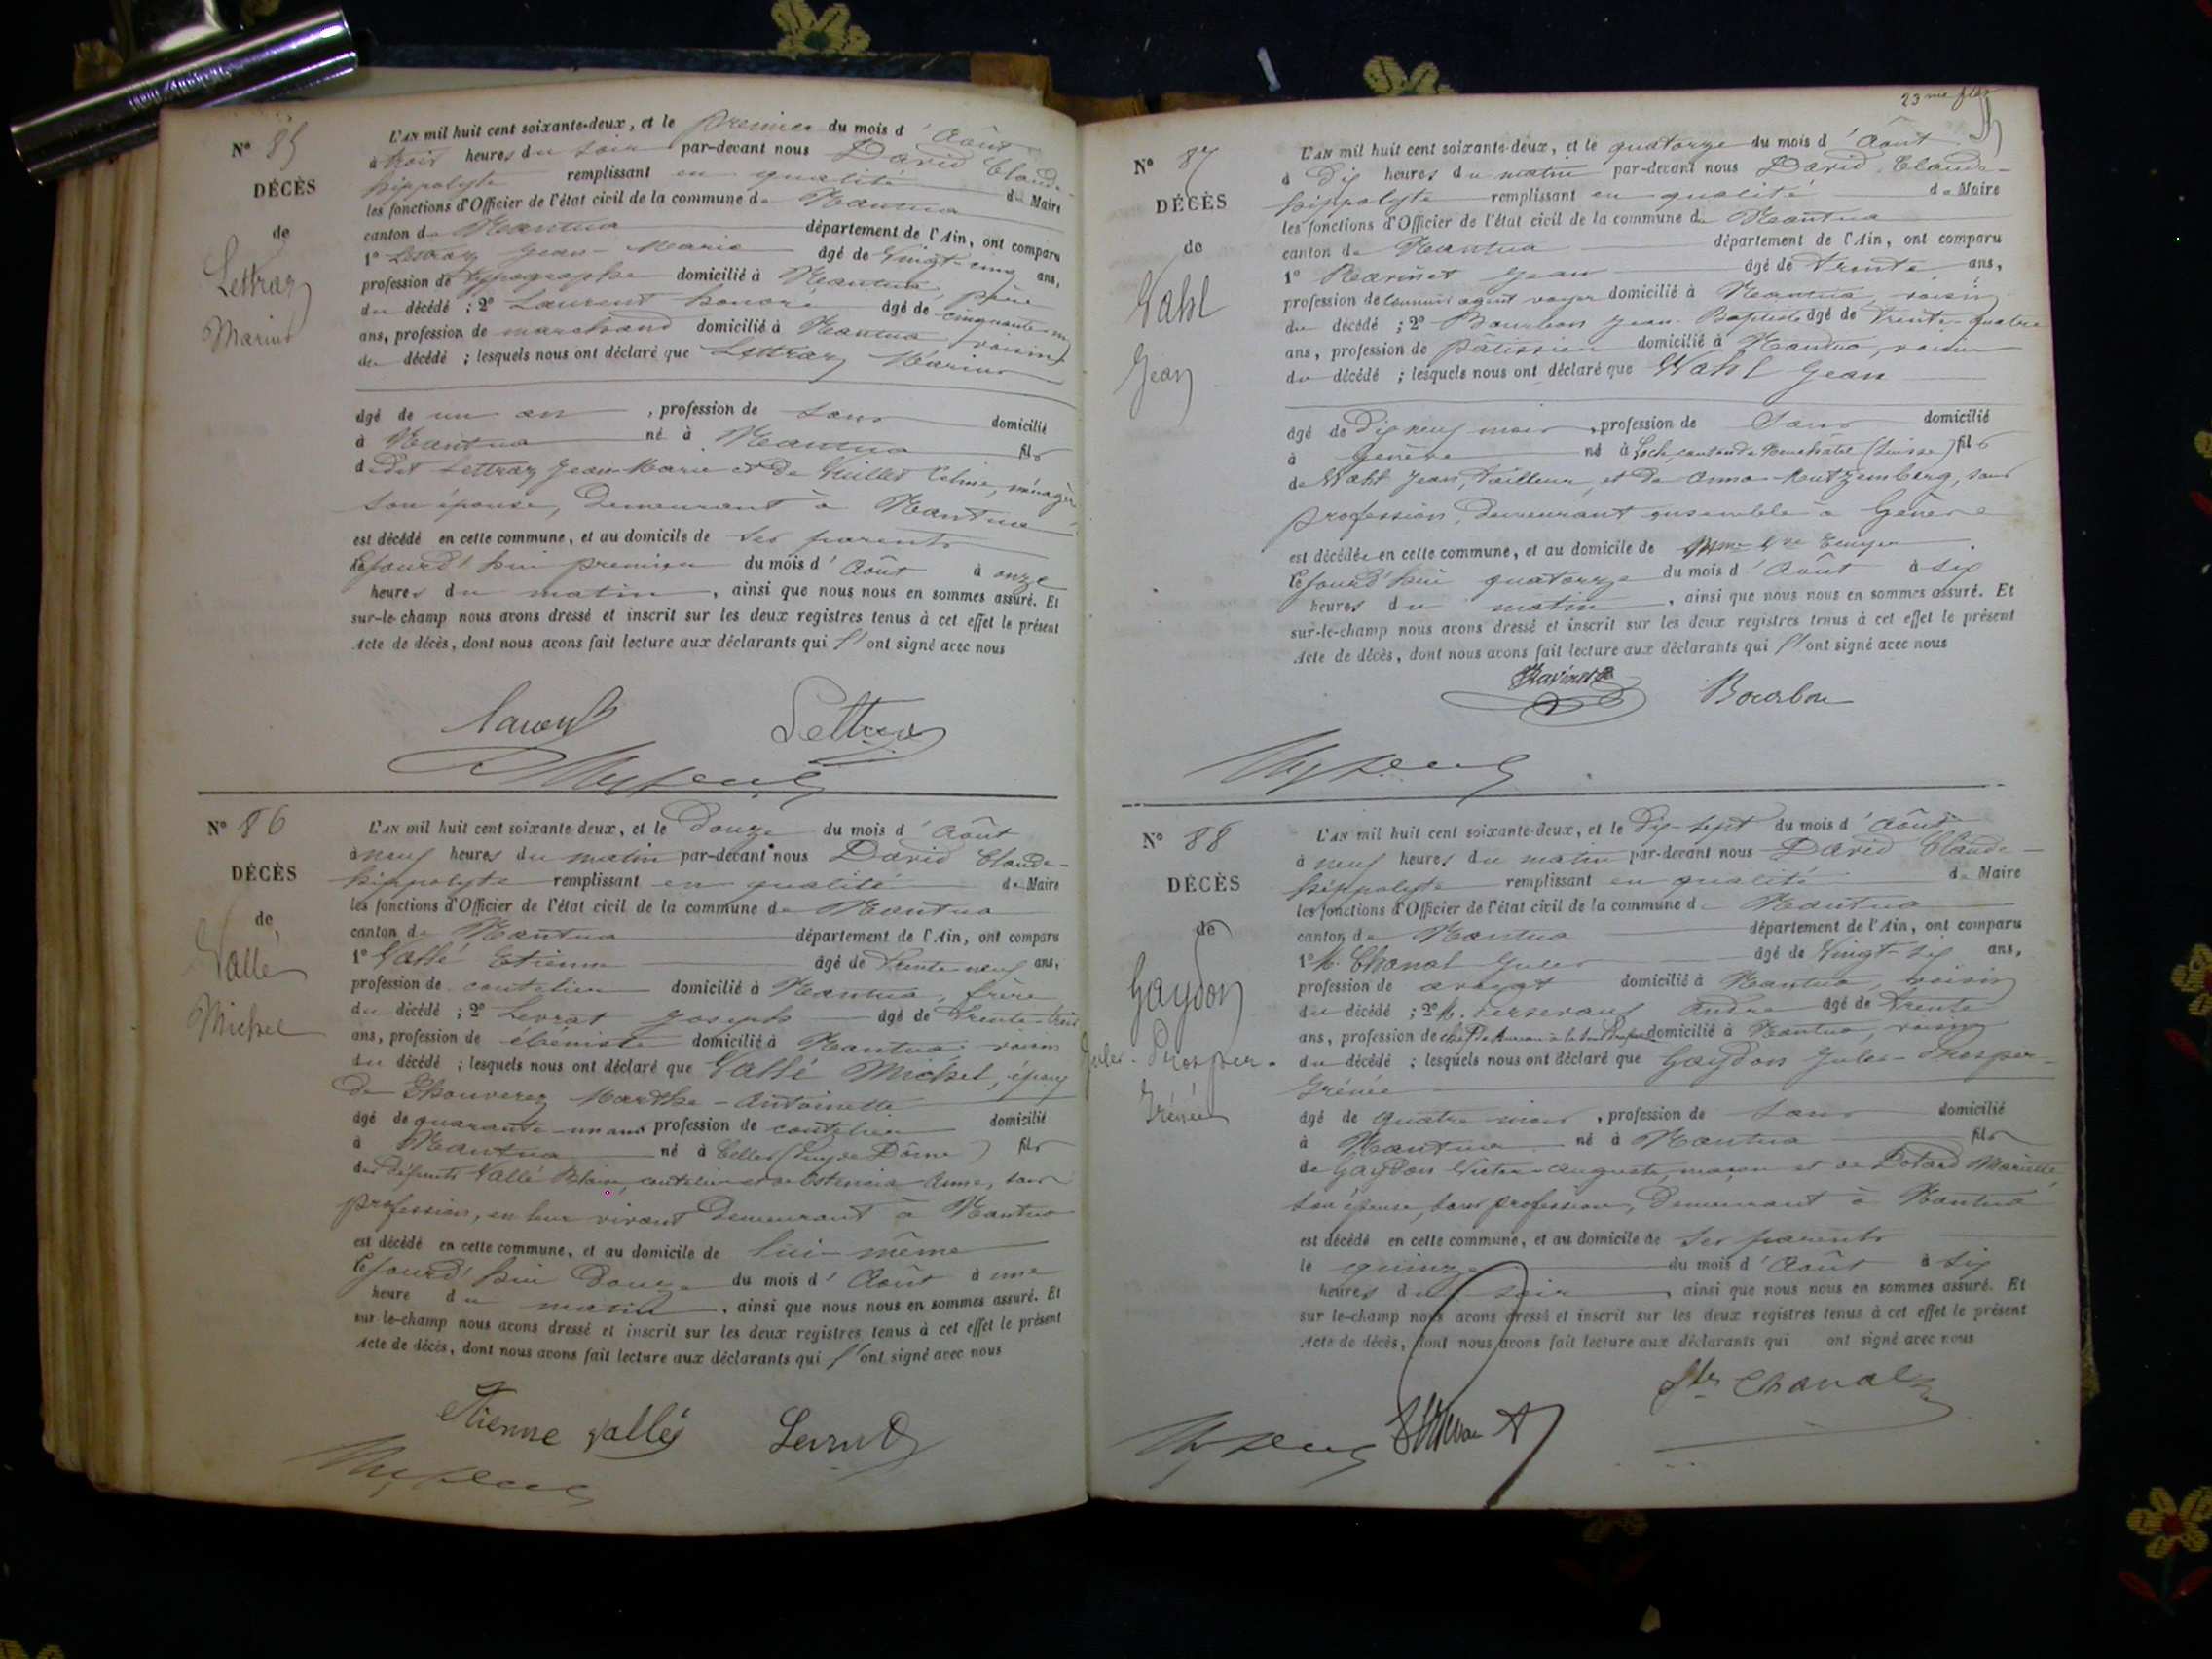 N° 85
DÉCÈS
de
Lettraz
Marius
L'AN mil huit cent soixante-deux, et le premier du mois d'Août
à trois heures du soir par-devant nous David Claude-
hippolyte remplissant en qualité de Maire
les fonctions d'Officier de l'état civil de la commune de Nantua
canton de Nantua département de l'Ain, ont comparu
1° Lettraz Jean-Marie âgé de Vingt-cinq ans,
profession de typographe domicilié à Nantua, père
du décédé ; 2° Laurent honoré âgé de cinquante-un
ans, profession de marchand domicilié à Nantua, voisin
du décédé ; lesquels nous ont déclaré que Lettraz Marius
âgé de un an, profession de sans domicilié
à Nantua né à Nantua fils
dudit Lettraz Jean-Marie et de Vuillet Celine, ménagère
son épouse, demeurant à Nantua
est décédé en cette commune, et au domicile de ses parents
cejourd'hui premier du mois d'Août à onze
heures du matin, ainsi que nous nous en sommes assuré. Et
sur-le-champ nous avons dressé et inscrit sur les deux registres tenus à cet effet le présent
Acte de décès, dont nous avons fait lecture aux déclarants qui l'ont signé avec nous
Lettraz
N° 86
DÉCÈS
de
Vallé
Michel
L'AN mil huit cent soixante-deux, et le douze du mois d'Août
à neuf heures du matin par-devant nous David Claude-
hippolyte remplissant en qualité de Maire
les fonctions d'Officier de l'état civil de la commune de Nantua
canton de Nantua département de l'Ain, ont comparu
1° Vallé Etienne âgé de trente-neuf ans,
profession de coutelier domicilié à Nantua, frère
du décédé ; 2° Levrat Joseph âgé de trente-trois
ans, profession de ébéniste domicilié à Nantua, voisin
du décédé ; lesquels nous ont déclaré que Vallé Michel, époux
de Thouverez Marthe-Antoinette
âgé de quarante-un ans profession de coutelier domicilié
à Nantua né à Celles (Puy de Dôme) fils
des défunts Vallé Blaise, coutelier et de Anne, sans
profession, en leur vivant demeurant à Nantua
est décédé en cette commune, et au domicile de lui-même
cejourd'hui douze du mois d'Août à une
heure du matin, ainsi que nous nous en sommes assuré. Et
sur-le-champ nous avons dressé et inscrit sur les deux registres tenus à cet effet le présent
Acte de décès, dont nous avons fait lecture aux déclarants qui l'ont signé avec nous
Etienne vallés Levrat
23me
N° 87
DÉCÈS
de
Wahl
Jean
L'AN mil huit cent soixante-deux, et le quatorze du mois d'Août
à dix heures du matin par-devant nous David Claude-
hippolyte remplissant en qualité de Maire
les fonctions d'Officier de l'état civil de la commune de Nantua
canton de Nantua département de l'Ain, ont comparu
1° Ravinet Jean âgé de trente ans,
profession de agent voyer domicilié à Nantua, voisin
du décédé ; 2° Bourbon Jean-Baptiste âgé de trente-quatre
ans, profession de pâtissier domicilié à Nantua, voisin
du décédé ; lesquels nous ont déclaré que Wahl Jean
âgé de dix neuf mois, profession de Sans domicilié
à Genève né à Locle, canton de Neuchâtel (Suisse) fils
de Wahl Jean, tailleur, et de Anna Kutzemberg, sans
profession, demeurant ensemble à Genève
est décédée en cette commune, et au domicile de Mme Vve
cejourd'hui quatorze du mois d'Août à six
heures du matin, ainsi que nous nous en sommes assuré. Et
sur-le-champ nous avons dressé et inscrit sur les deux registres tenus à cet effet le présent
Acte de décès, dont nous avons fait lecture aux déclarants qui l'ont signé avec nous
Ravinet Bourbon
N° 88
DÉCÈS
de
Gaydon
Jules-Prosper-
Irénée
L'AN mil huit cent soixante-deux, et le dix-sept du mois d'Août
à neuf heures du matin par-devant nous David Claude-
hippolyte remplissant en qualité de Maire
les fonctions d'Officier de l'état civil de la commune de Nantua
canton de Nantua département de l'Ain, ont comparu
1° M. Chanal Jules âgé de Vingt-six ans,
profession de avocat domicilié à Nantua, voisin
du décédé ; 2° M. André âgé de trente
ans, profession de chef de bureau à la domicilié à Nantua, voisin
du décédé ; lesquels nous ont déclaré que Gaydon Jules-Prosper-
Irénée
âgé de quatre mois, profession de sans domicilié
à Nantua né à Nantua fils
de Gaydon Victor-Auguste, maçon et de
son épouse, sans profession, demeurant à Nantua
est décédé en cette commune, et au domicile de ses parents
le quinze du mois d'Août à six
heures du soir, ainsi que nous nous en sommes assuré. Et
sur-le-champ nous avons dressé et inscrit sur les deux registres tenus à cet effet le présent
Acte de décès, dont nous avons fait lecture aux déclarants qui ont signé avec nous
Jles Chanal